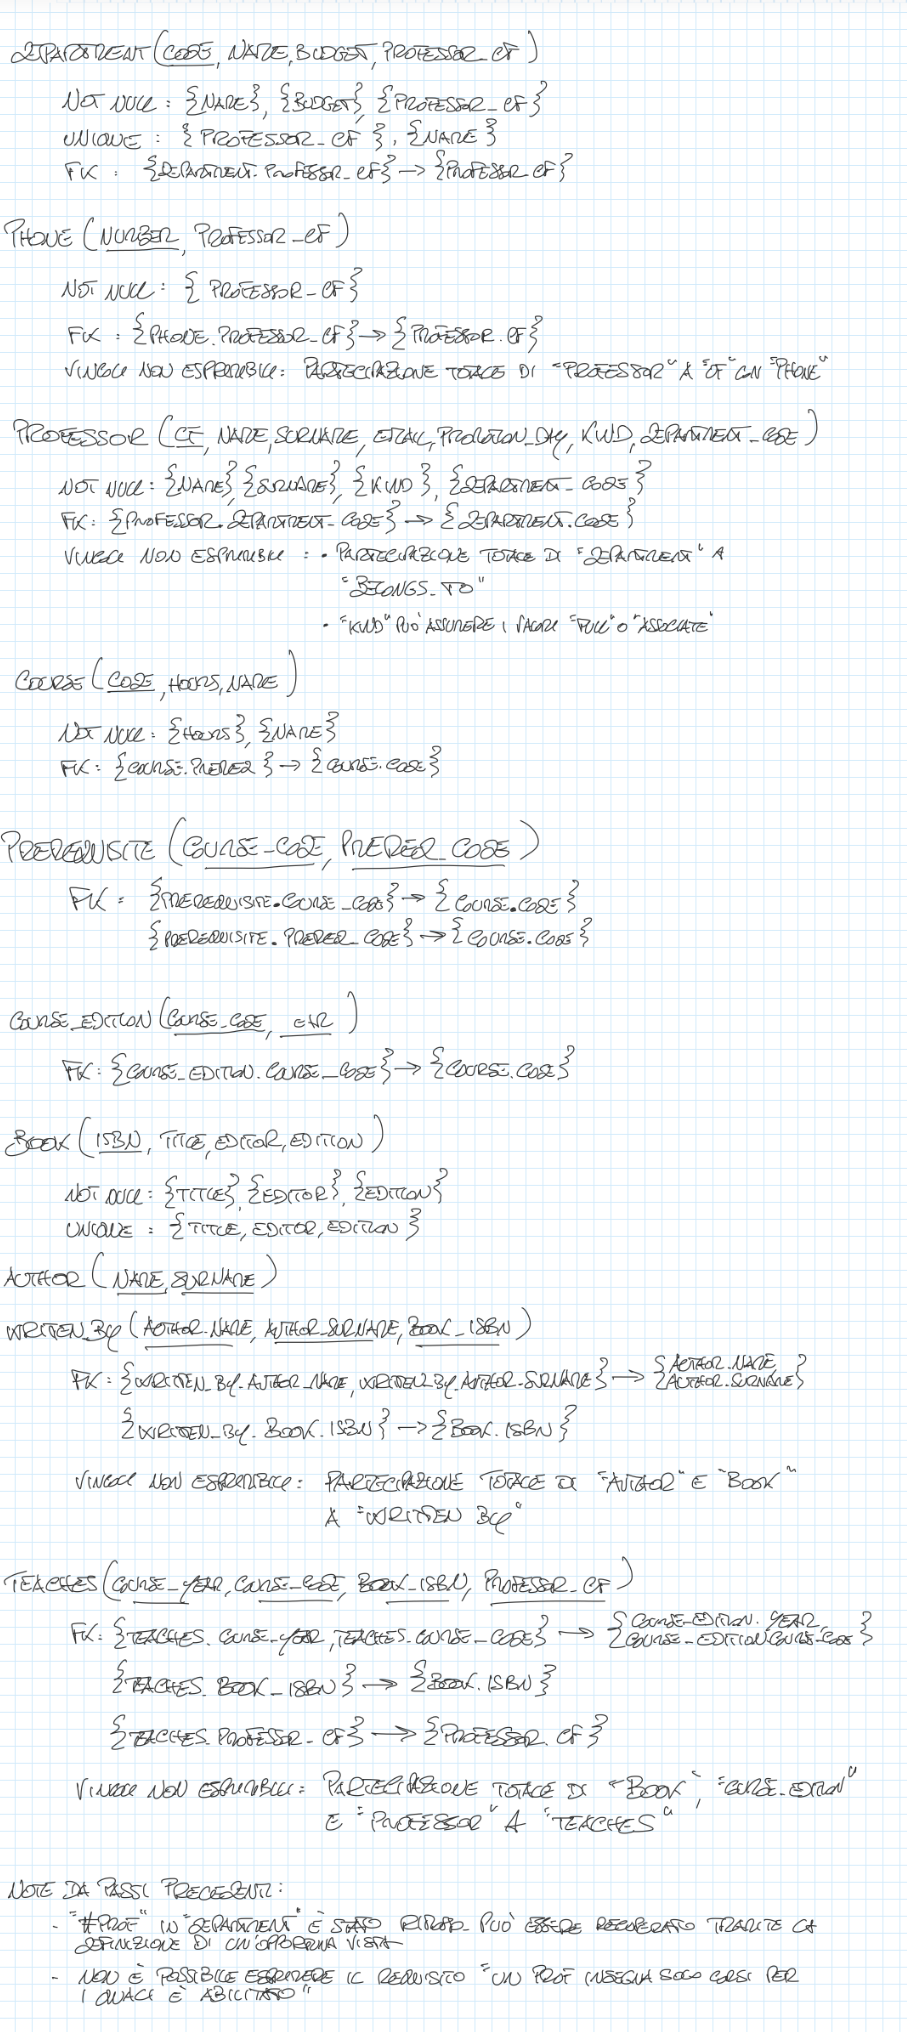 DEPARTMENT (CODE, NAME, BUDGET, PROFESSOR_CF)
NOT NULL : {NAME}, {BUDGET}, {PROFESSOR_CF}
UNIQUE : {PROFESSOR_CF}, {NAME}
FK : {DEPARTMENT.PROFESSOR_CF} → {PROFESSOR.CF}
PHONE (NUMBER, PROFESSOR_CF)
NOT NULL : {PROFESSOR_CF}
FK : {PHONE.PROFESSOR_CF} → {PROFESSOR.CF}
VINCOLI NON ESPRIMIBILI: PARTECIPAZIONE TOTALE DI "PROFESSOR" A "OF" CON "PHONE"
PROFESSOR (CF, NAME, SURNAME, EMAIL, PROMOTION_DAY, KIND, DEPARTMENT_CODE)
NOT NULL : {NAME} {SURNAME}, {KIND}, {DEPARTMENT_CODE}
FK: {PROFESSOR.DEPARTMENT_CODE} → {DEPARTMENT.CODE}
VINCOLI NON ESPRIMIBILI : • PARTECIPAZIONE TOTALE DI "DEPARTMENT" A
"BELONGS_TO"
• "KIND" PUÒ ASSUMERE I VALORI "FULL" O "ASSOCIATE"
COURSE (CODE, HOURS, NAME)
NOT NULL : {HOURS}, {NAME}
FK: {COURSE.PREREQ} → {COURSE.CODE}
PREREQUISITE (COURSE_CODE, PREREQ_CODE)
FK : {PREREQUISITE.COURSE_CODE} → {COURSE.CODE}
{PREREQUISITE.PREREQ_CODE} → {COURSE.CODE}
COURSE_EDITION (COURSE_CODE, EAR)
FK: {COURSE_EDITION.COURSE_CODE} → {COURSE.CODE}
BOOK (ISBN, TITLE, EDITOR, EDITION)
NOT NULL : {TITLE}, {EDITOR}, {EDITION}
UNIQUE : {TITLE, EDITOR, EDITION}
AUTHOR (NAME, SURNAME)
WRITTEN_BY (AUTHOR_NAME, AUTHOR_SURNAME, BOOK_ISBN)
FK : {WRITTEN_BY.AUTHOR_NAME, WRITTEN_BY.AUTHOR_SURNAME} → {AUTHOR.NAME, AUTHOR.SURNAME}
{WRITTEN_BY.BOOK.ISBN} → {BOOK.ISBN}
VINCOLI NON ESPRIMIBILI : PARTECIPAZIONE TOTALE DI "AUTHOR" E "BOOK"
A "WRITTEN BY"
TEACHES (COURSE_YEAR, COURSE_CODE, BOOK_ISBN, PROFESSOR_CF)
FK: {TEACHES.COURSE_YEAR, TEACHES.COURSE_CODE} → {COURSE_EDITION.YEAR, COURSE_EDITION.COURSE_CODE}
{TEACHES.BOOK_ISBN} → {BOOK.ISBN}
{TEACHES.PROFESSOR_CF} → {PROFESSOR.CF}
VINCOLI NON ESPRIMIBILI : PARTECIPAZIONE TOTALE DI "BOOK", "COURSE_EDITION"
E "PROFESSOR" A "TEACHES"
NOTE DA PASSI PRECEDENTI:
- "#PROF" IN "DEPARTMENT" È STATO RIMOSSO. PUÒ ESSERE RECUPERATO TRAMITE LA
DEFINIZIONE DI UN'OPPORTUNA VISTA
- NON È POSSIBILE ESPRIMERE IL REQUISITO "UN PROF INSEGNA SOLO CORSI PER
I QUALI È ABILITATO"